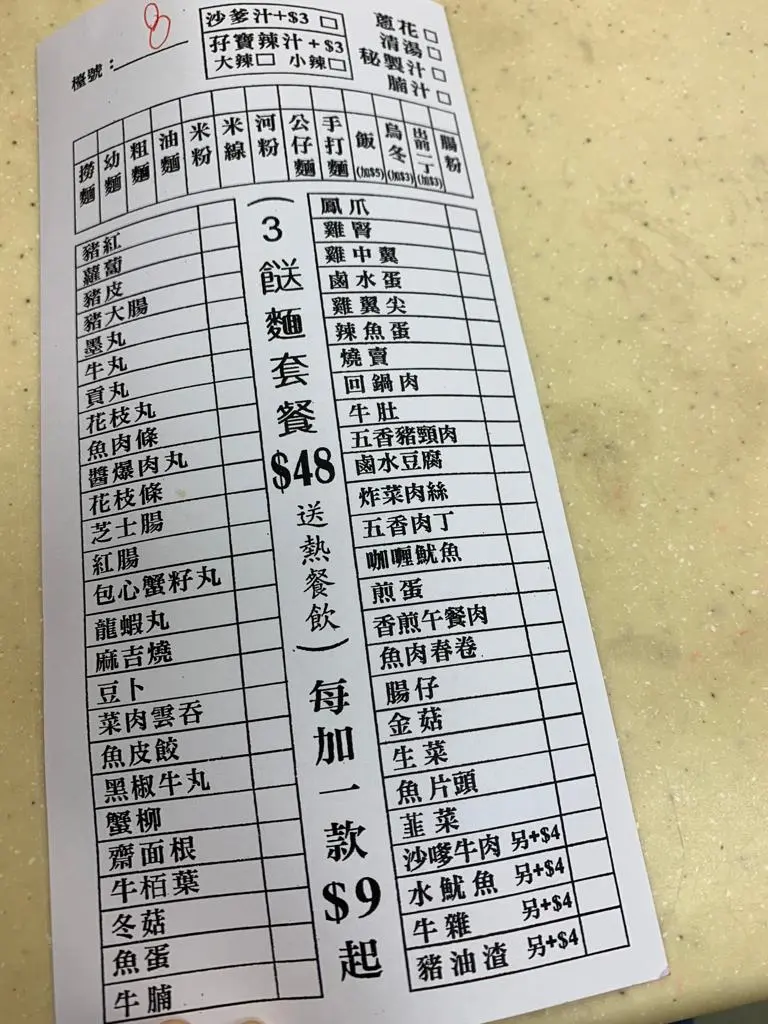 檯號：8
沙爹汁+$3
孖寶辣汁+$3
大辣 小辣
蔥花
清湯
秘製汁
腩汁
撈麵
幼麵
粗麵
油麵
米粉
米線
河粉
公仔麵
手打麵
飯(加$5)
烏冬(加$3)
出前一丁(加$3)
腸粉
豬紅
蘿蔔
豬皮
豬大腸
墨丸
牛丸
貢丸
花枝丸
魚肉條
醬爆肉丸
花枝條
芝士腸
紅腸
包心蟹籽丸
龍蝦丸
麻吉燒
豆卜
菜肉雲吞
魚皮餃
黑椒牛丸
蟹柳
齋面根
牛栢葉
冬菇
魚蛋
牛腩
(3餸麵套餐$48送熱餐飲)每加一款$9起
鳳爪
雞腎
雞中翼
鹵水蛋
雞翼尖
辣魚蛋
燒賣
回鍋肉
牛肚
五香豬頸肉
鹵水豆腐
炸菜肉絲
五香肉丁
咖喱魷魚
煎蛋
香煎午餐肉
魚肉春卷
腸仔
金菇
生菜
魚片頭
韮菜
沙嗲牛肉 另+$4
水魷魚 另+$4
牛雜 另+$4
豬油渣 另+$4